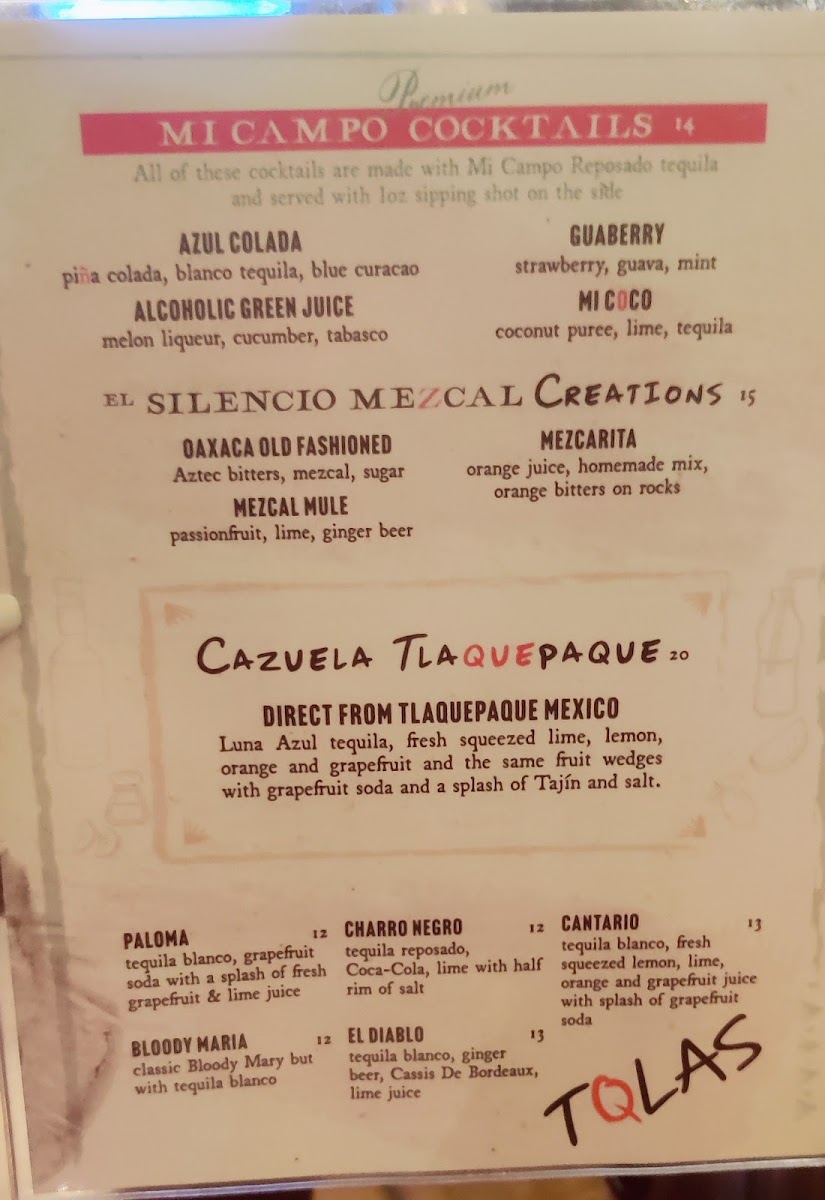 Premium
MI CAMPO COCKTAILS 14
All of these cocktails are made with Mi Campo Reposado tequila
and served with 1oz sipping shot on the side
AZUL COLADA
piña colada, blanco tequila, blue curacao
GUABERRY
strawberry, guava, mint
ALCOHOLIC GREEN JUICE
melon liqueur, cucumber, tabasco
MI COCO
coconut puree, lime, tequila
EL SILENCIO MEZCAL CREATIONS 15
OAXACA OLD FASHIONED
Aztec bitters, mezcal, sugar
MEZCARITA
orange juice, homemade mix,
orange bitters on rocks
MEZCAL MULE
passionfruit, lime, ginger beer
CAZUELA TLAQUEPAQUE 20
DIRECT FROM TLAQUEPAQUE MEXICO
Luna Azul tequila, fresh squeezed lime, lemon,
orange and grapefruit and the same fruit wedges
with grapefruit soda and a splash of Tajín and salt.
PALOMA 12
tequila blanco, grapefruit
soda with a splash of fresh
grapefruit & lime juice
CHARRO NEGRO 12
tequila reposado,
Coca-Cola, lime with half
rim of salt
CANTARIO 13
tequila blanco, fresh
squeezed lemon, lime,
orange and grapefruit juice
with splash of grapefruit
soda
BLOODY MARIA 12
classic Bloody Mary but
with tequila blanco
EL DIABLO 13
tequila blanco, ginger
beer, Cassis De Bordeaux,
lime juice
TQLAS